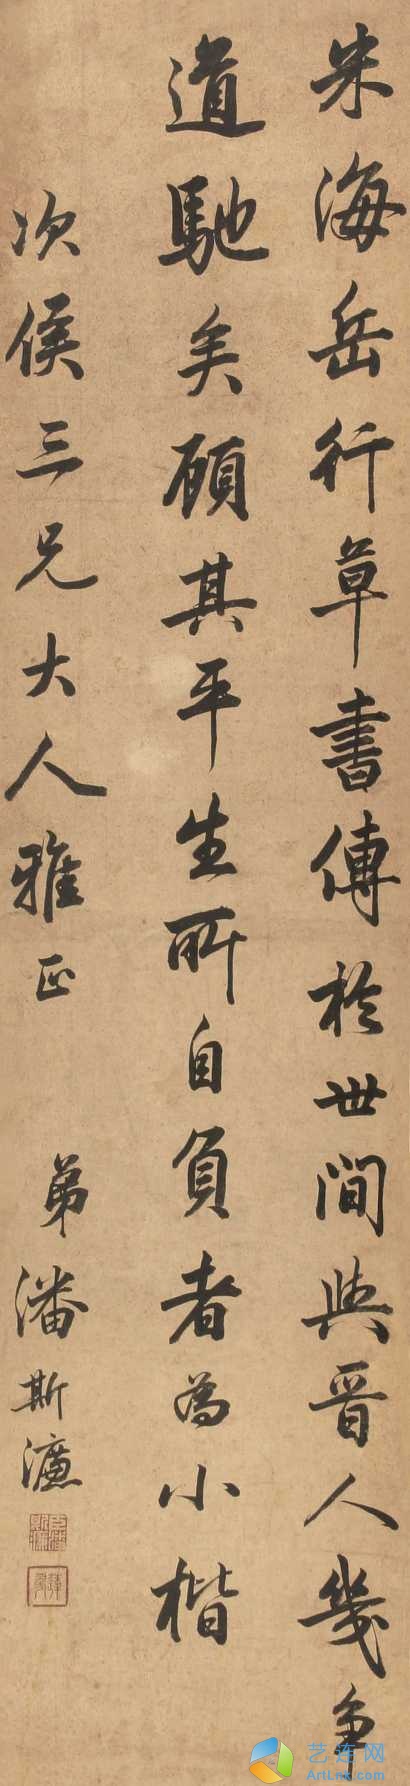 米海岳行草書傳於世間與晉人幾爭
道馳矣顧其平生所自負者為小楷
次侯三兄大人雅正 弟潘斯濂
艺连网
ArtLnk.com